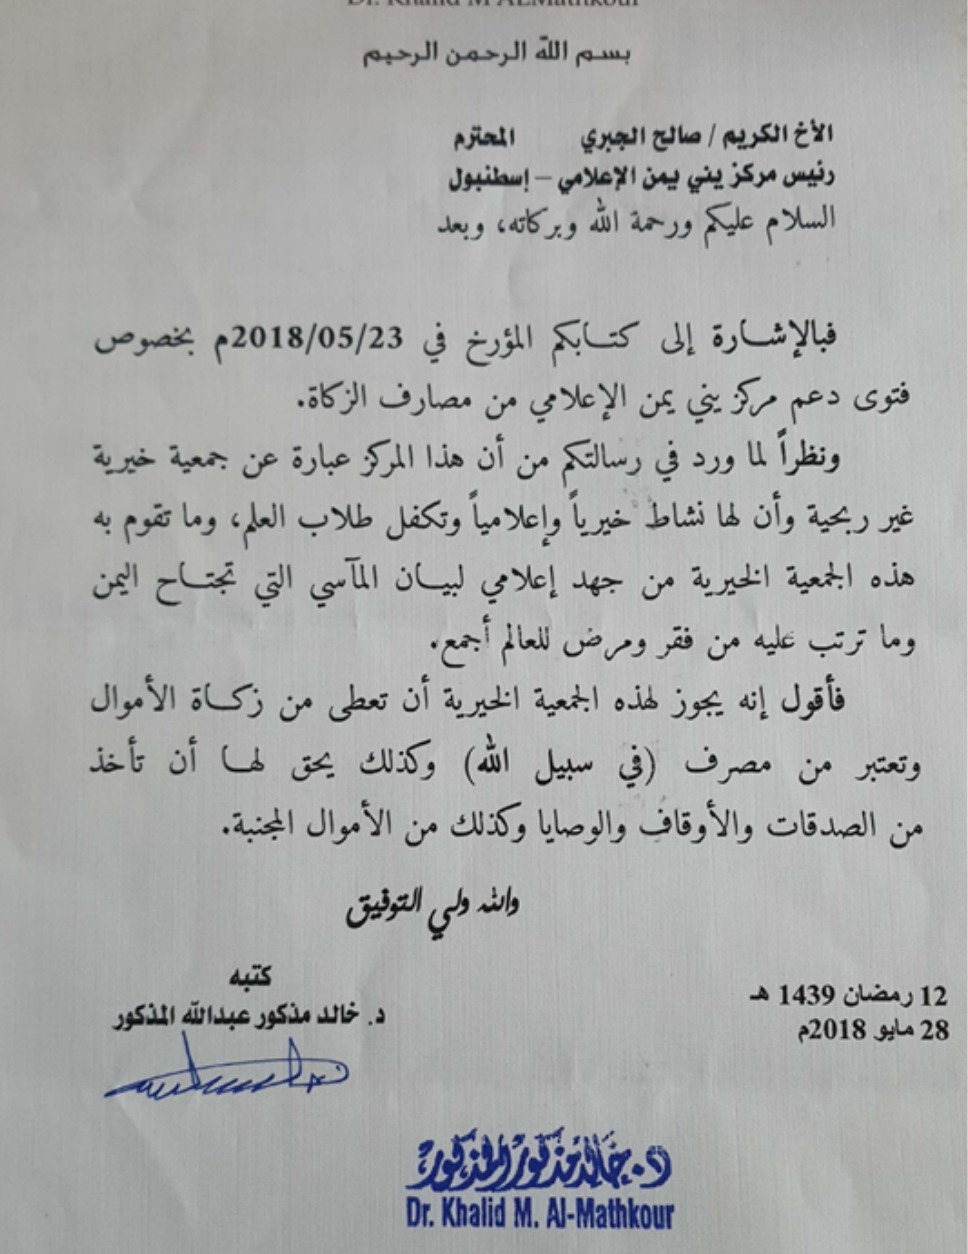 Dr. Khalid M ALMathkour
بسم الله الرحمن الرحيم
الأخ الكريم / صالح الجبري المحترم
رئيس مركز يني يمن الإعلامي – إسطنبول
السلام عليكم ورحمة الله وبركاته، وبعد
فبالإشارة إلى كتابكم المؤرخ في 2018/05/23م بخصوص
فتوى دعم مركز يني يمن الإعلامي من مصارف الزكاة.
ونظراً لما ورد في رسالتكم من أن هذا المركز عبارة عن جمعية خيرية
غير ربحية وأن لها نشاط خيرياً وإعلامياً وتكفل طلاب العلم، وما تقوم به
هذه الجمعية الخيرية من جهد إعلامي لبيان المآسي التي تجتاح اليمن
وما ترتب عليه من فقر ومرض للعالم أجمع.
فأقول إنه يجوز لهذه الجمعية الخيرية أن تعطى من زكاة الأموال
وتعتبر من مصرف (في سبيل الله) وكذلك يحق لها أن تأخذ
من الصدقات والأوقاف والوصايا وكذلك من الأموال المجنبة.
والله ولي التوفيق
كتبه
د. خالد مذكور عبدالله المذكور
12 رمضان 1439 هـ
28 مايو 2018م
د. خالد مذكور المذكور
Dr. Khalid M. Al-Mathkour